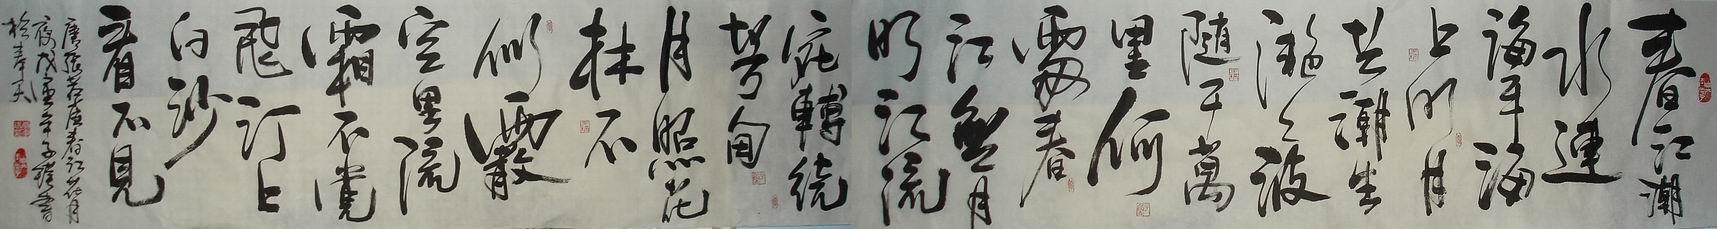 春江潮
水連
海平海
上明月
共潮生
滟々波
随千萬
里何
處春
江無月
明江流
宛轉繞
芳甸
月照花
林不
似霰
空里流
霜不覺
飛汀上
白沙
看不見
唐張若虛春江花月
夜